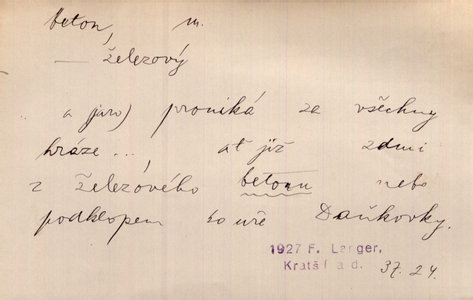 beton, m.
— železový
a (jaro) proniká za všechny
hráze..., ať již zdmi
z železového betonu nebo
podklopem souře Daňkovky.
1927 F. Langer,
Kratší a d. 37.24.